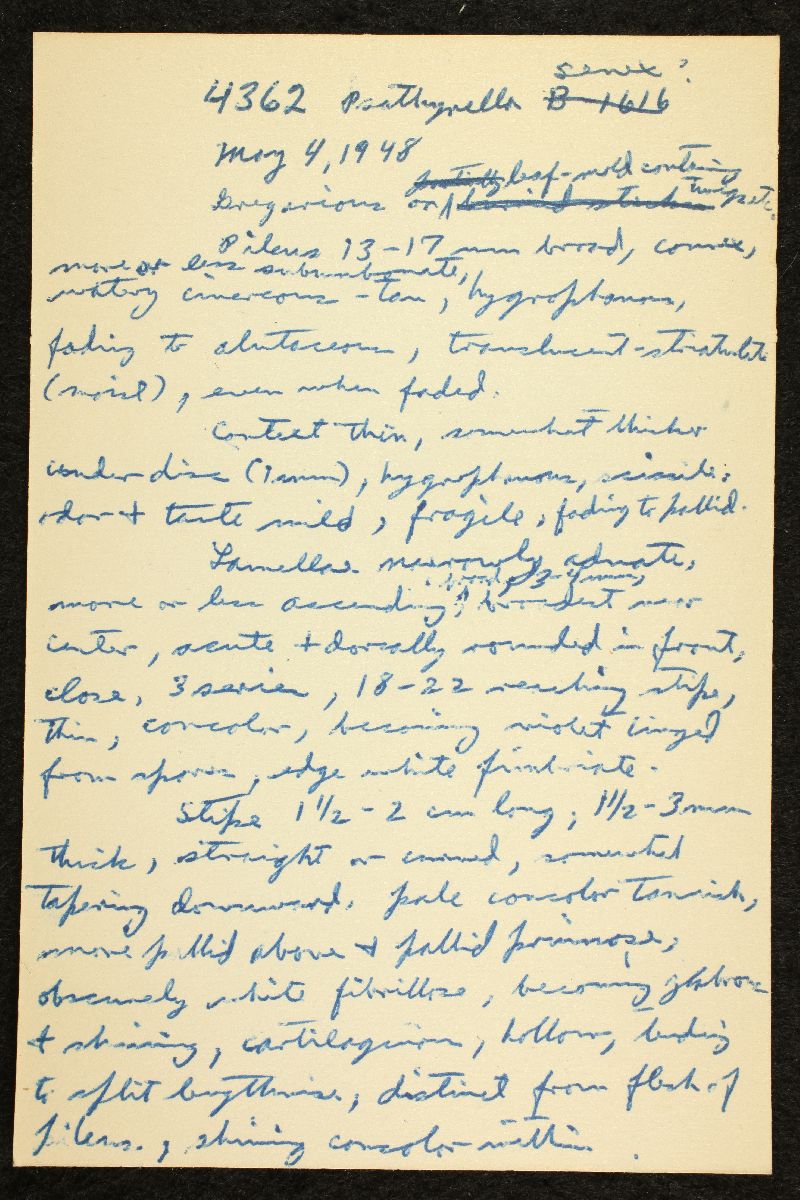 senex?
4362 Psathyrella B-1616
May 4, 1948
partially leaf-mold containing
Gregarious on buried sticks twigs etc.
Pileus 13-17 mm broad, convex,
more or less subumbonate,
watery cinereous-tan, hygrophanous,
fading to alutaceous, translucent-striatulate
(moist), even when faded.
Context thin, somewhat thicker
under disc (1 mm), hygrophanous, scissile;
odor & taste mild, fragile, fading to pallid.
Lamellae narrowly adnate,
broad, 3-4 mm,
more or less ascending, broadest near
center, acute & dorsally rounded in front,
close, 3 series, 18-22 reaching stipe,
thin, concolor, becoming violet tinged
from spores, edge white fimbriate.
Stipe 1 1/2-2 cm long, 1 1/2-3 mm
thick, straight or curved, somewhat
tapering downward, pale concolor tannish,
more pallid above & pallid pruinose,
obscurely white fibrillose, becoming glabrous
& shining, cartilaginous, hollow, tending
to split lengthwise, distinct from flesh of
pileus, shining concolor within.